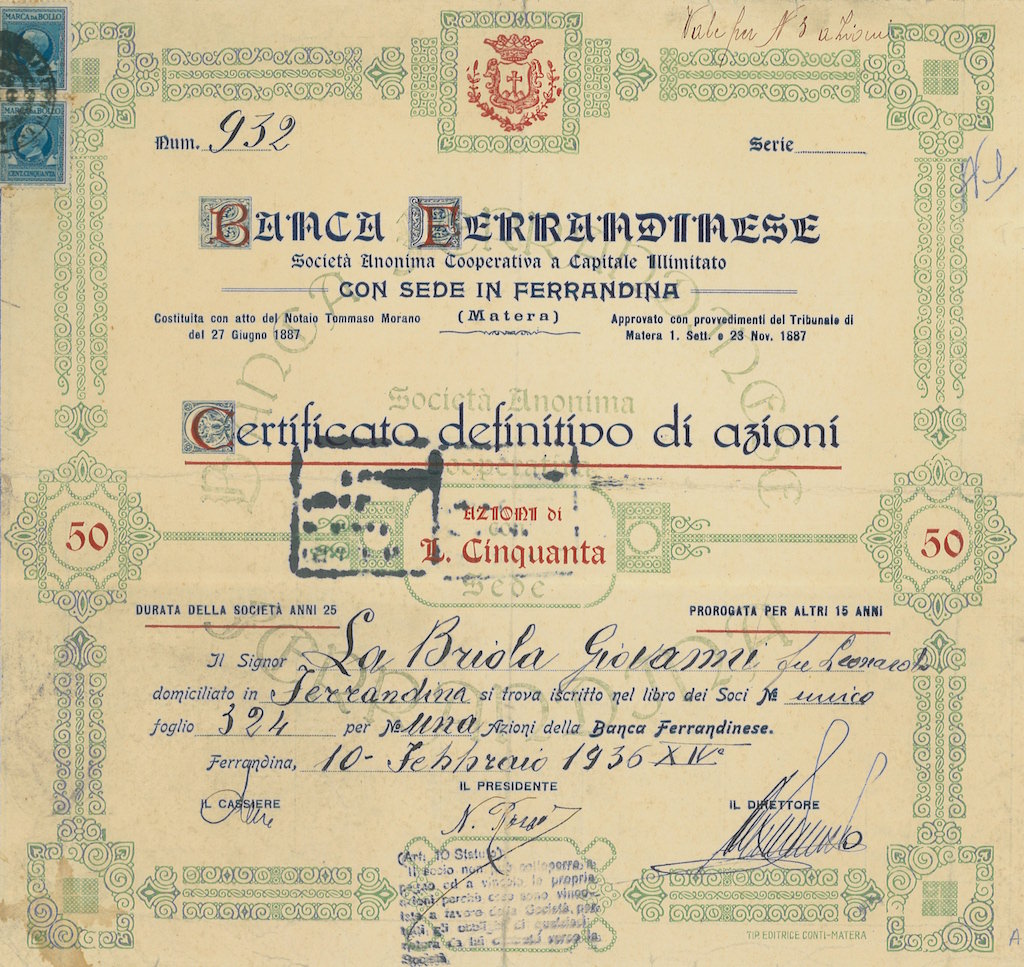 MARCA DA BOLLO
MARCA DA BOLLO
CENT. CINQUANTA
Vale per N 3 azioni
Num. 932
Serie
BANCA FERRANDINESE
Società Anonima Cooperativa a Capitale Illimitato
CON SEDE IN FERRANDINA
(Matera)
Costituita con atto del Notaio Tommaso Morano
del 27 Giugno 1887
Approvato con provvedimenti del Tribunale di
Matera 1. Sett. e 23 Nov. 1887
BANCA FERRANDINESE
Società Anonima
Cooperativa
con
Sede
Certificato definitivo di azioni
50
AZIONI di
L. Cinquanta
50
DURATA DELLA SOCIETÀ ANNI 25
PROROGATA PER ALTRI 15 ANNI
Il Signor La Briola Giovanni fu Leonardo
domiciliato in Ferrandina si trova iscritto nel libro dei Soci No unico
foglio 324 per No una Azioni della Banca Ferrandinese.
Ferrandina, 10 Febbraio 1936 XIVo
IL CASSIERE
IL PRESIDENTE
IL DIRETTORE
(Art. 10 Statuto)
Il socio non
le propria
azioni perchè esse sono vinco-
late a favore della Società per
tutti gli obblighi di qualsiasi
natura da lui verso la
Società.
TIP. EDITRICE CONTI-MATERA